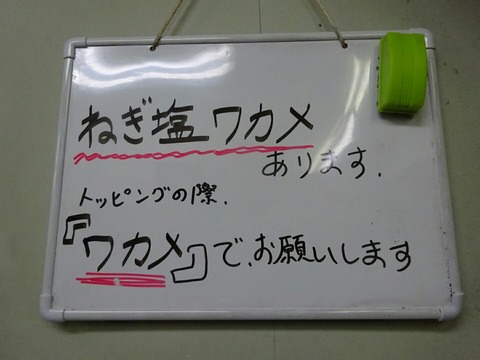 ねぎ塩ワカメ
あります.
トッピングの際.
『ワカメ』で.お願いします